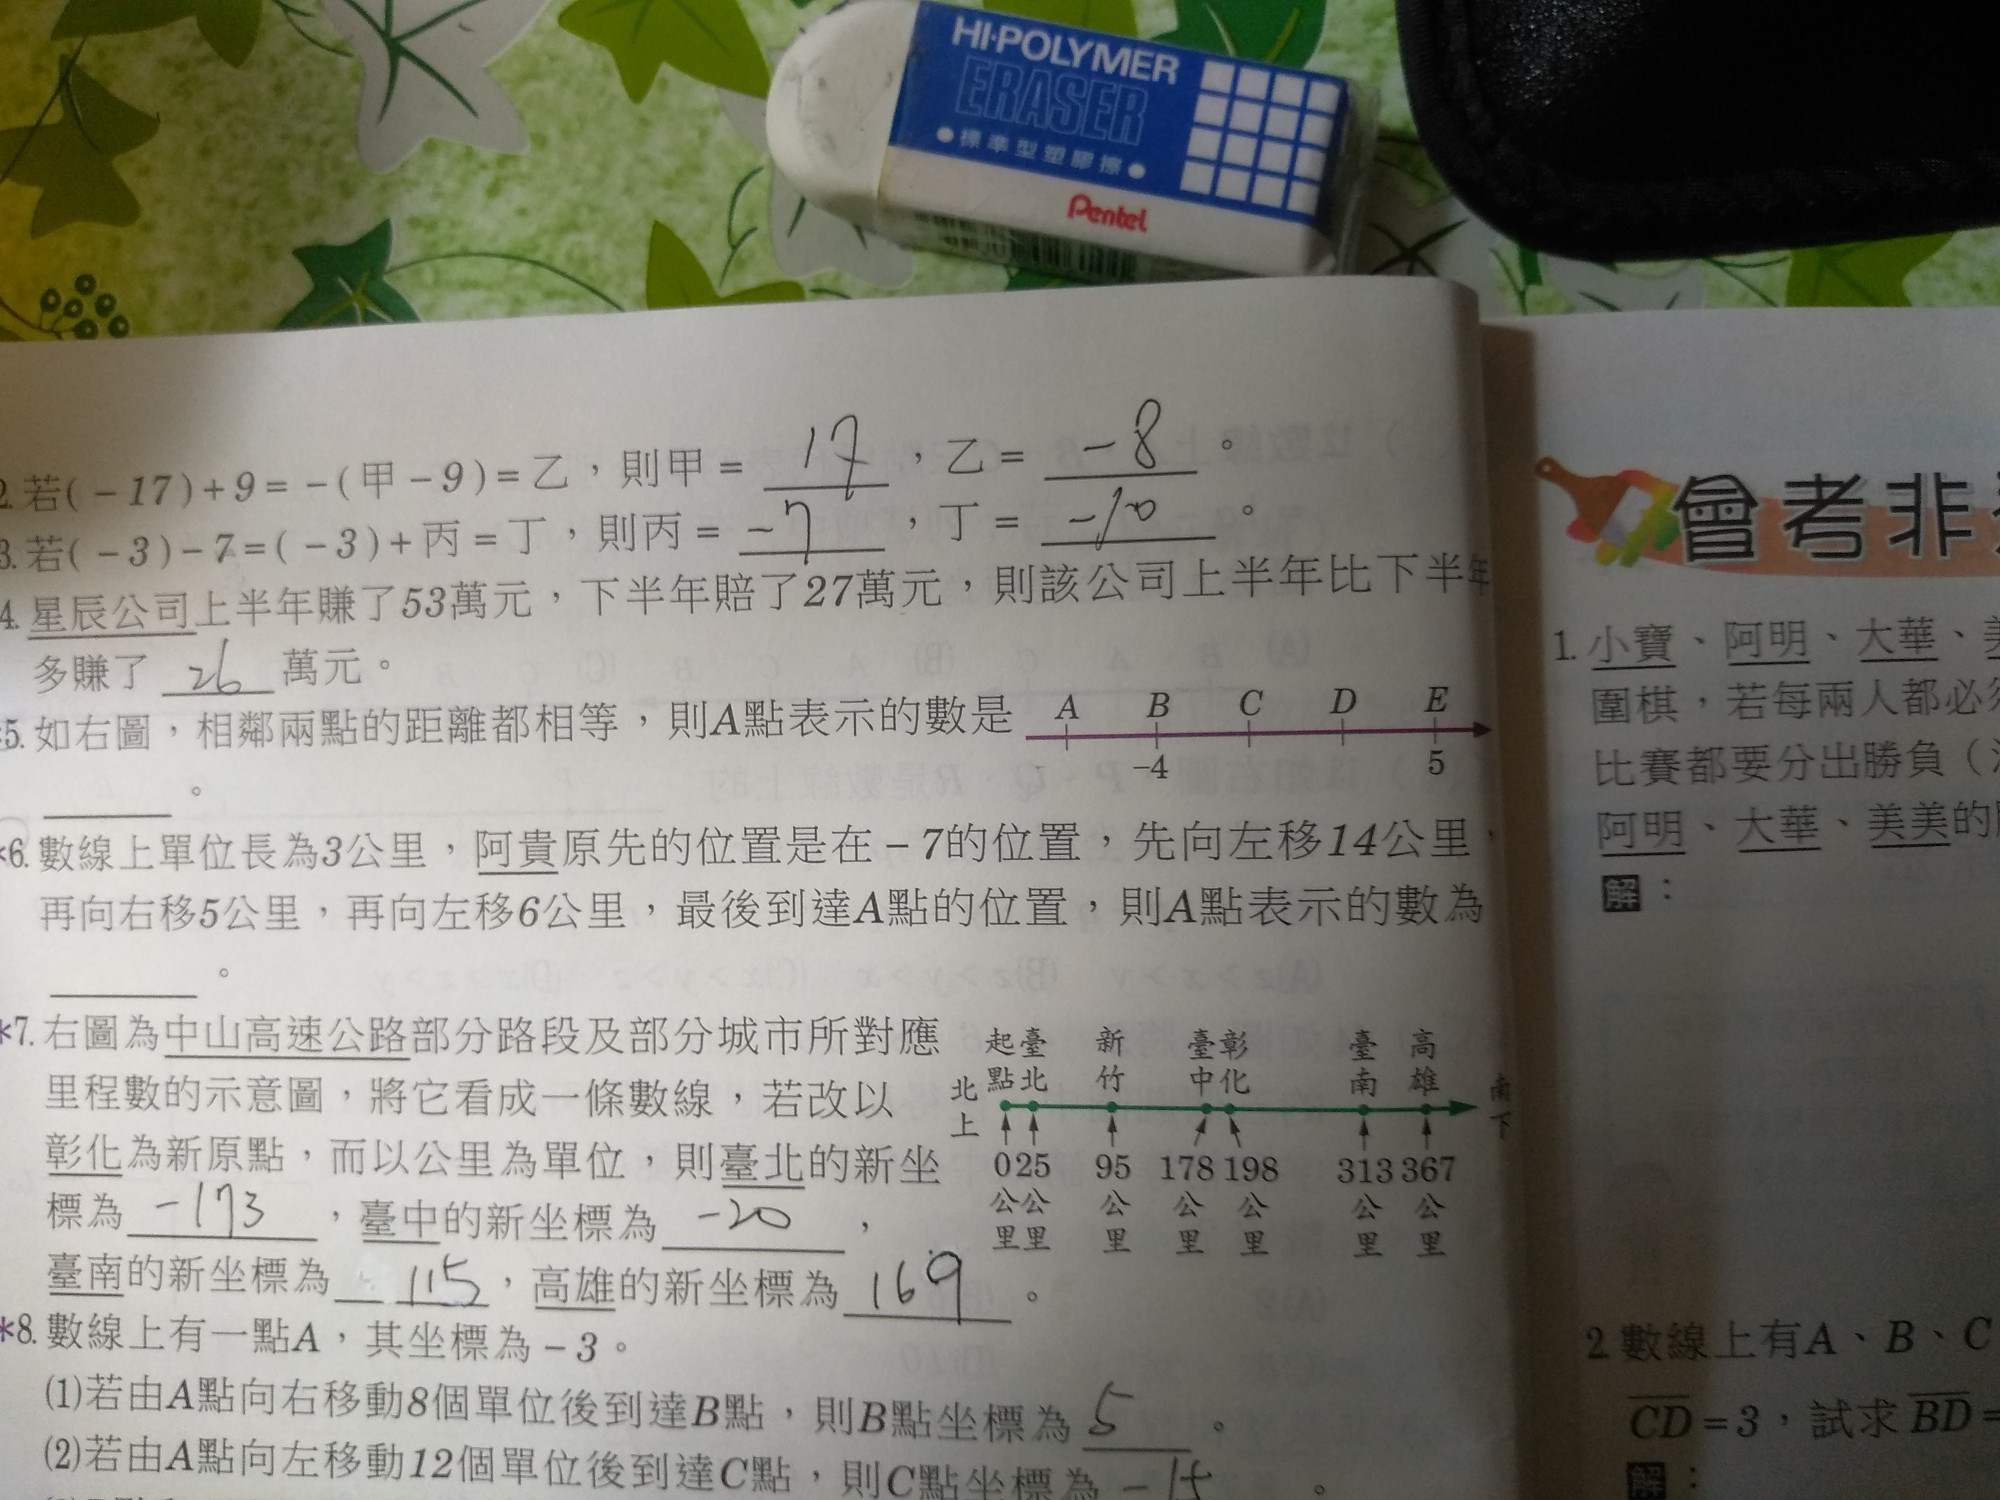 HI-POLYMER
ERASER
●標準型塑膠擦●
Pentel
2.若(-17)+9=-(甲-9)=乙，則甲= 17 ，乙= -8 。
3.若(-3)-7=(-3)+丙=丁，則丙= -7 ，丁= -10 。
4.星辰公司上半年賺了53萬元，下半年賠了27萬元，則該公司上半年比下半年
多賺了 26 萬元。
*5.如右圖，相鄰兩點的距離都相等，則A點表示的數是
。
A B C D E
-4 5
*6.數線上單位長為3公里，阿貴原先的位置是在-7的位置，先向左移14公里，
再向右移5公里，再向左移6公里，最後到達A點的位置，則A點表示的數為
。
*7.右圖為中山高速公路部分路段及部分城市所對應
里程數的示意圖，將它看成一條數線，若改以
彰化為新原點，而以公里為單位，則臺北的新坐
標為 -173 ，臺中的新坐標為 -20 ，
臺南的新坐標為 115 ，高雄的新坐標為 169 。
起點 臺北 新竹 臺中 彰化 臺南 高雄
北上 南下
0公里 25公里 95公里 178公里 198公里 313公里 367公里
*8.數線上有一點A，其坐標為-3。
(1)若由A點向右移動8個單位後到達B點，則B點坐標為 5 。
(2)若由A點向左移動12個單位後到達C點，則C點坐標為 -15 。
會考非
1.小寶、阿明、大華、美
圍棋，若每兩人都必須
比賽都要分出勝負（
阿明、大華、美美的
解：
2.數線上有A、B、C
CD=3，試求BD=
解：